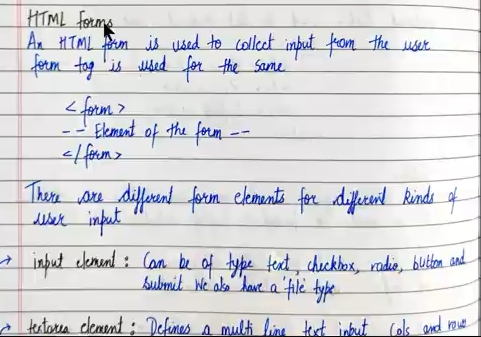 HTML forms
An HTML form is used to collect input from the user
form tag is used for the same
<form>
-- Element of the form --
</form>
There are different form elements for different kinds of
user input
→ input element : Can be of type text, checkbox, radio, button and
submit We also have a 'file' type
→ textarea element : Defines a multi line text input Cols and rows